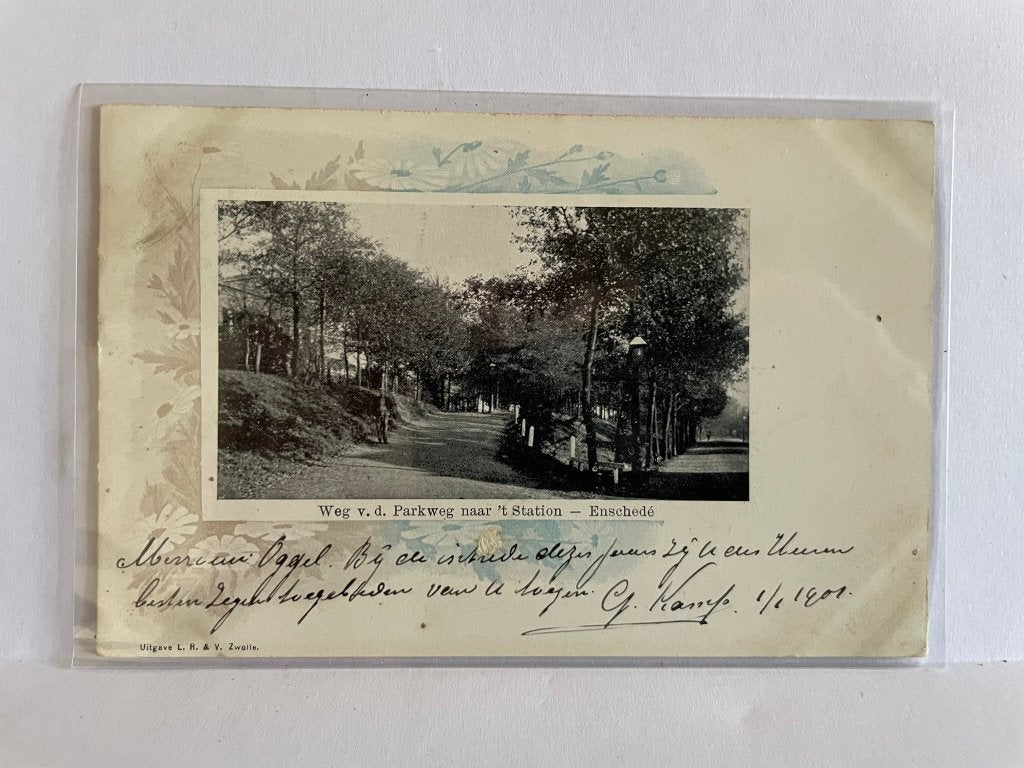 Weg v. d. Parkweg naar 't Station — Enschedé
Oggel. Bij de intrede dezes jaars zij u des Heeren
besten Zegen toegebeden van u toegen. G. Kamp. 1/1 1901.
Uitgave L. R. & V. Zwolle.